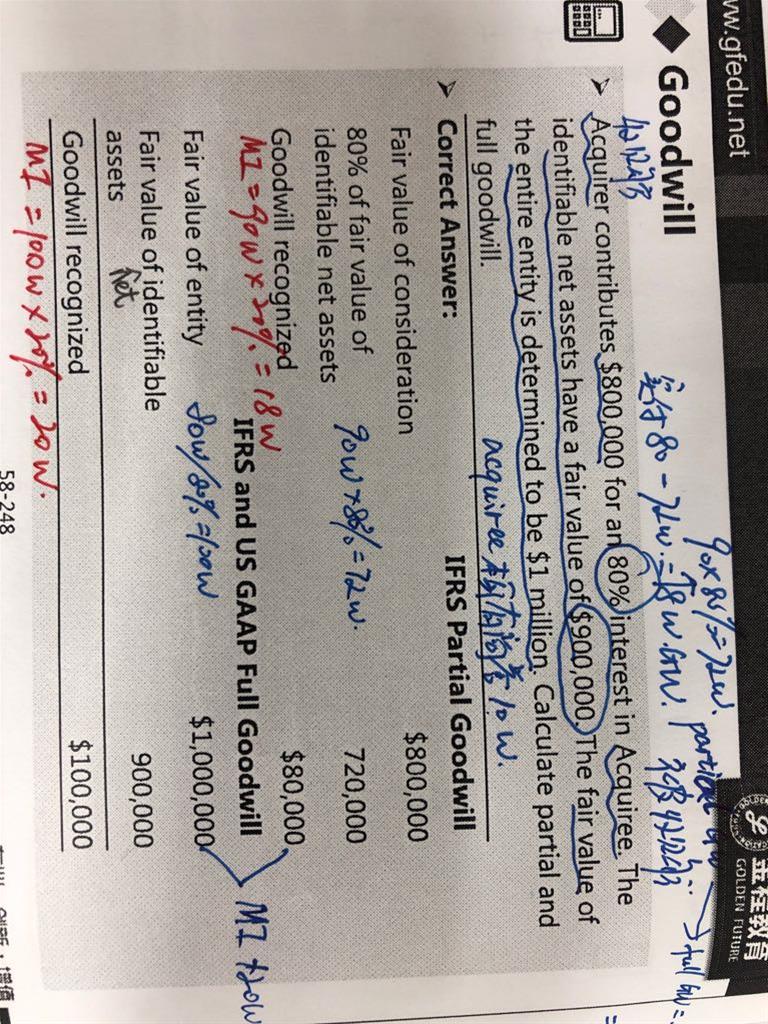 ww.gfedu.net
金程教育
GOLDEN FUTURE
Goodwill
90×80%=72w. partial GW → full GW =
实付80 - 72w. = 8w. GW.
Acquirer contributes $800,000 for an 80% interest in Acquiree. The
identifiable net assets have a fair value of $900,000. The fair value of
the entire entity is determined to be $1 million. Calculate partial and
full goodwill.
acquiree
10w.
Correct Answer:
IFRS Partial Goodwill
Fair value of consideration $800,000
80% of fair value of
identifiable net assets 90w×80%=72w. 720,000
Goodwill recognized $80,000
MI=90w×20%=18w
IFRS and US GAAP Full Goodwill
Fair value of entity 80w/80%=100w $1,000,000
MI
Fair value of identifiable
assets 900,000
net
Goodwill recognized $100,000
MI=100w×20%=20w.
58-248